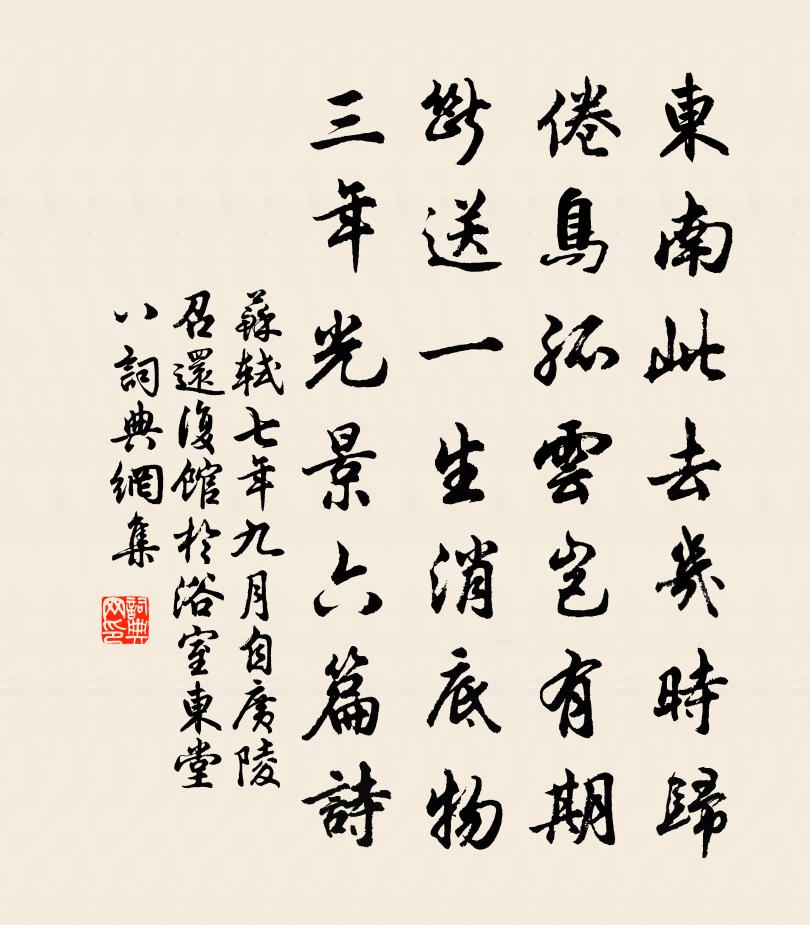 東南此去幾時歸
倦鳥孤雲豈有期
斷送一生消底物
三年光景六篇詩
蘇軾七年九月自廣陵
召還復館於浴室東堂
八詞典網集
詞典
网印